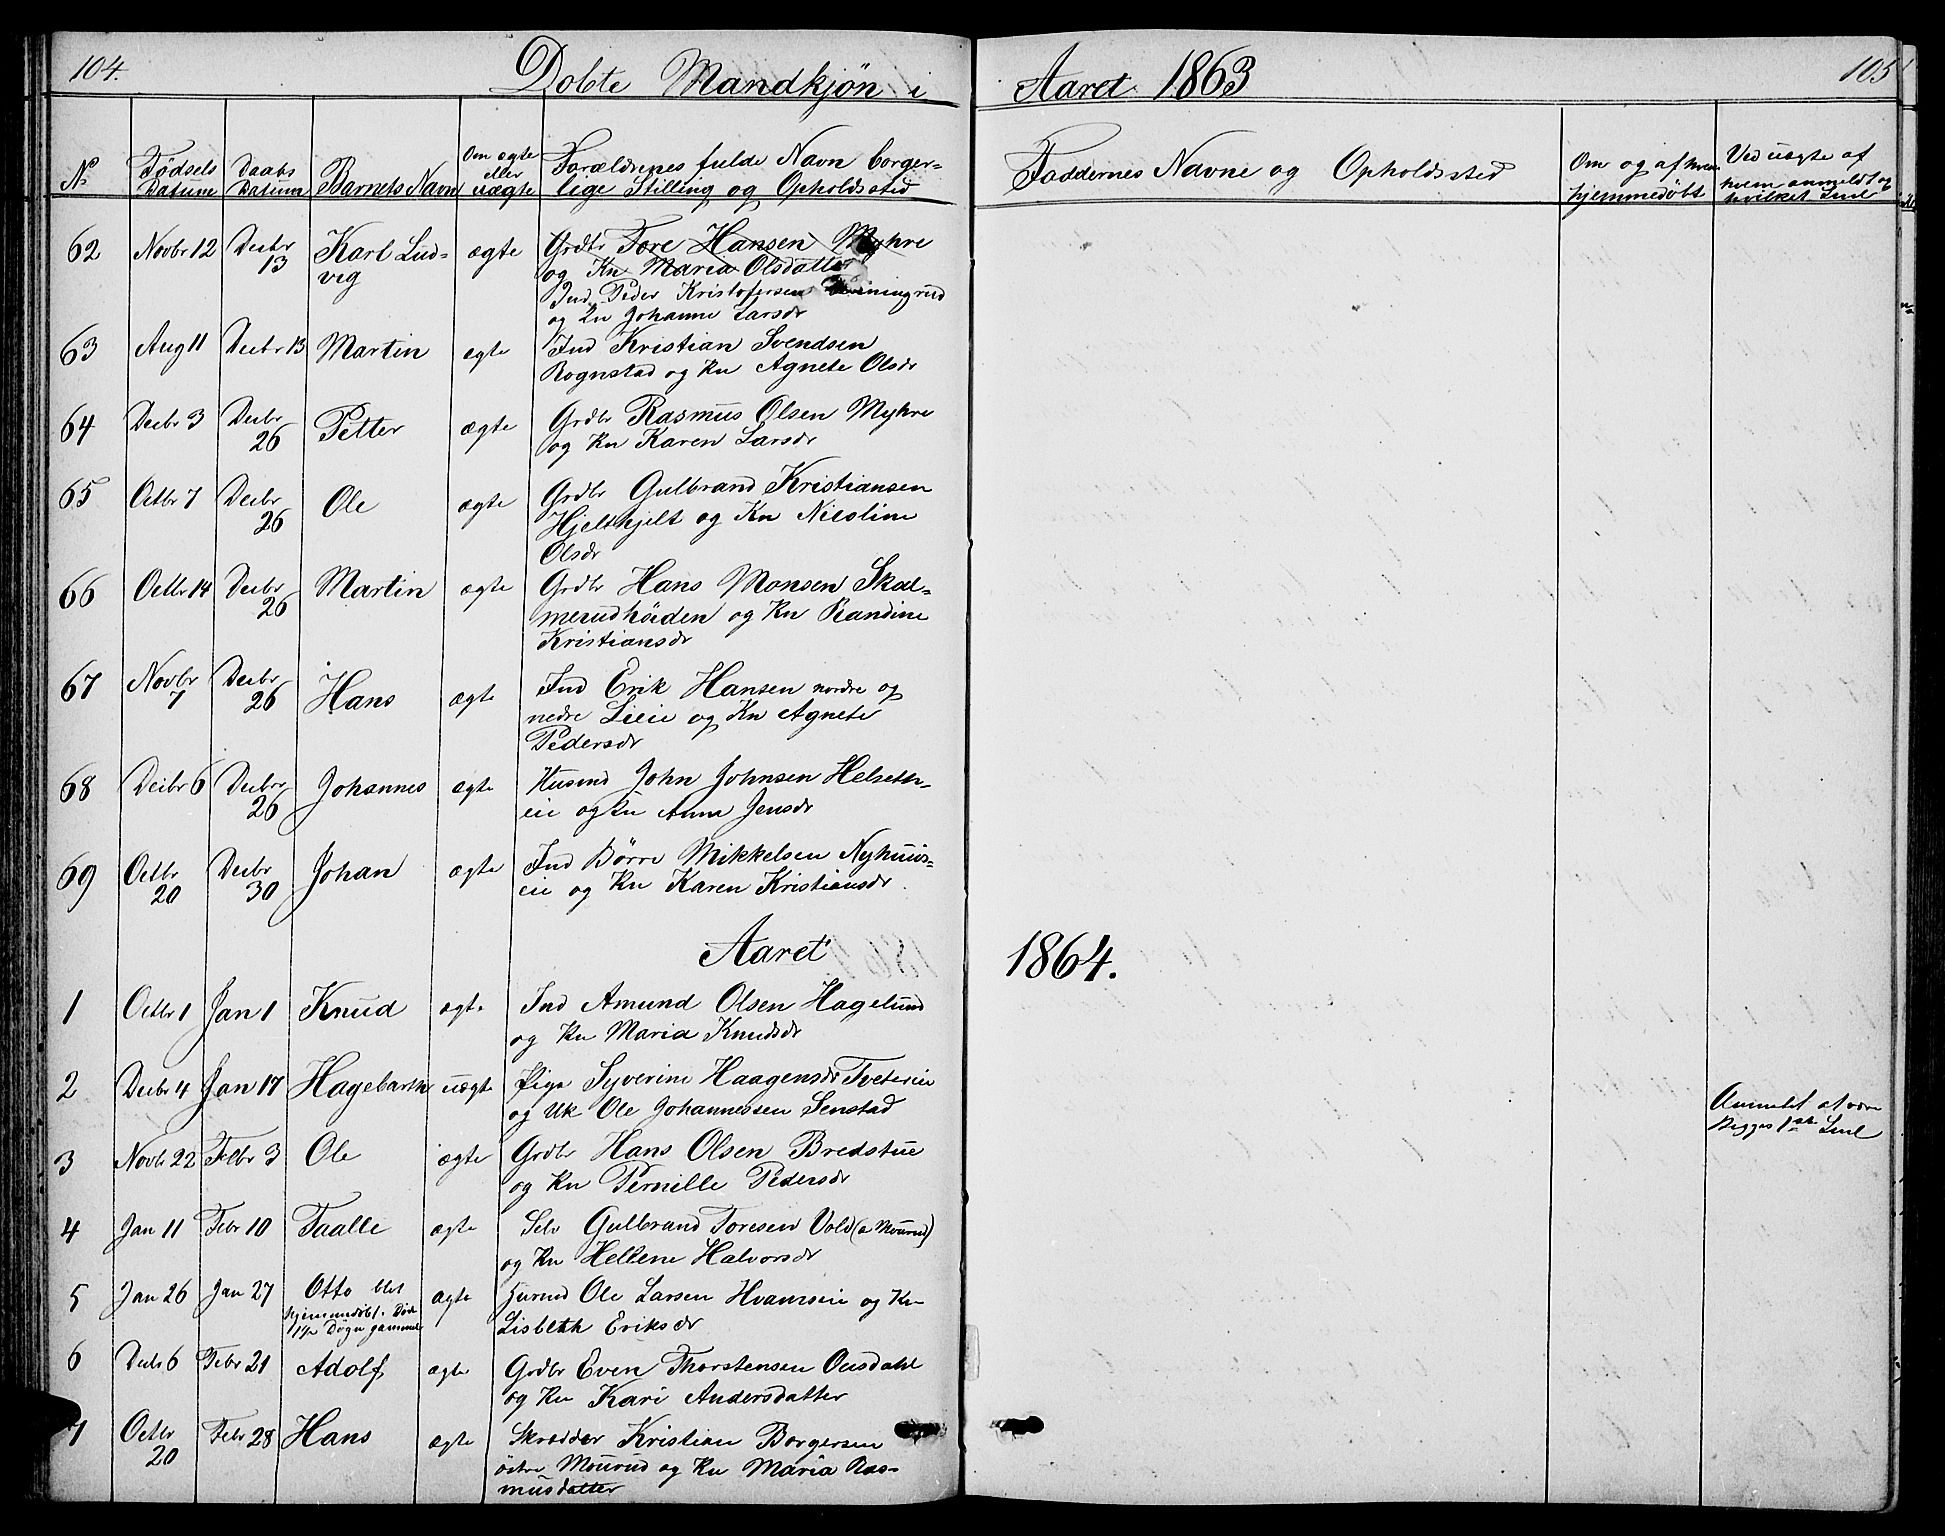 104.
Døbte Mandkjøn i
Aaret 1863
105
N° Fødsels Datum Daabs Datum Barnets Navn Om ægte eller uægte Forældrenes fulde Navn borger-
lige Stilling og Opholdssted
Faddernes Navne og Opholdssted
Om og af hvem
hjemmedøbt
Ved uægte af
hvem anmeldt og
hvilket Leiel
62 Novbr 12 Decbr 13 Karl Lud-
vig ægte Grdbr Tore Hansen Myhre
og Kn Maria Olsdatter
Ind Peder Kristofersen
og Kn Johanne Larsdr
63 Aug 11 Decbr 13 Martin ægte Ind Kristian Svendsen
Rognstad og Kn Agnete Olsdr
64 Decbr 3 Decbr 26 Petter ægte Grdbr Rasmus Olsen Myhre
og Kn Karen Larsdr
65 Octbr 7 Decbr 26 Ole ægte Grdbr Gulbrand Kristiansen
Hjelthjelt og Kn Nicoline
Olsdr
66 Octbr 14 Decbr 26 Martin ægte Grdbr Hans Monsen Skol-
merudhöiden og Kn Randine
Kristiansdr
67 Novbr 7 Decbr 26 Hans ægte Ind Erik Hansen nordre og
nedre Lieie og Kn Agnete
Pedersdr
68 Decbr 6 Decbr 26 Johannes ægte Husmd John Johnsen Helseth-
eie og Kn Anne Jensdr
69 Octbr 20 Decbr 30 Johan ægte Ind Börre Mikkelsen Nyhuus-
eie og Kn Karen Kristiansdr
Aaret 1864.
1 Octbr 1 Jan 1 Knud ægte Ind Amund Olsen Hagelund
og Kn Maria Knudsdr
2 Decbr 4 Jan 17 Hagebarth uægte Pige Syverine Haagensdr Tvetereie
og Uk Ole Johannessen Senstad
Anmeldt at være
Begges 1ste Leiel
3 Novbr 22 Febr 3 Ole ægte Grdbr Hans Olsen Bredstue
og Kn Pernille Pedersdr
4 Jan 11 Febr 10 Taalle ægte Selv Gulbrand Toresen Vold (a Mourud)
og Kn Hellene Halvorsdr
5 Jan 26 Jan 27 Otto blev
hjemmedøbt. Døde
1½ Døgn gammel ægte Husmd Ole Larsen Hvamseie og Kn
Lisbeth Eriksdr
6 Decbr 6 Febr 21 Adolf ægte Grdbr Even Thorstensen Ousdahl
og Kn Kari Andersdatter
7 Octbr 20 Febr 28 Hans ægte Skrædder Kristian Borgersen
östre Mourud og Kn Maria Ras-
musdatter